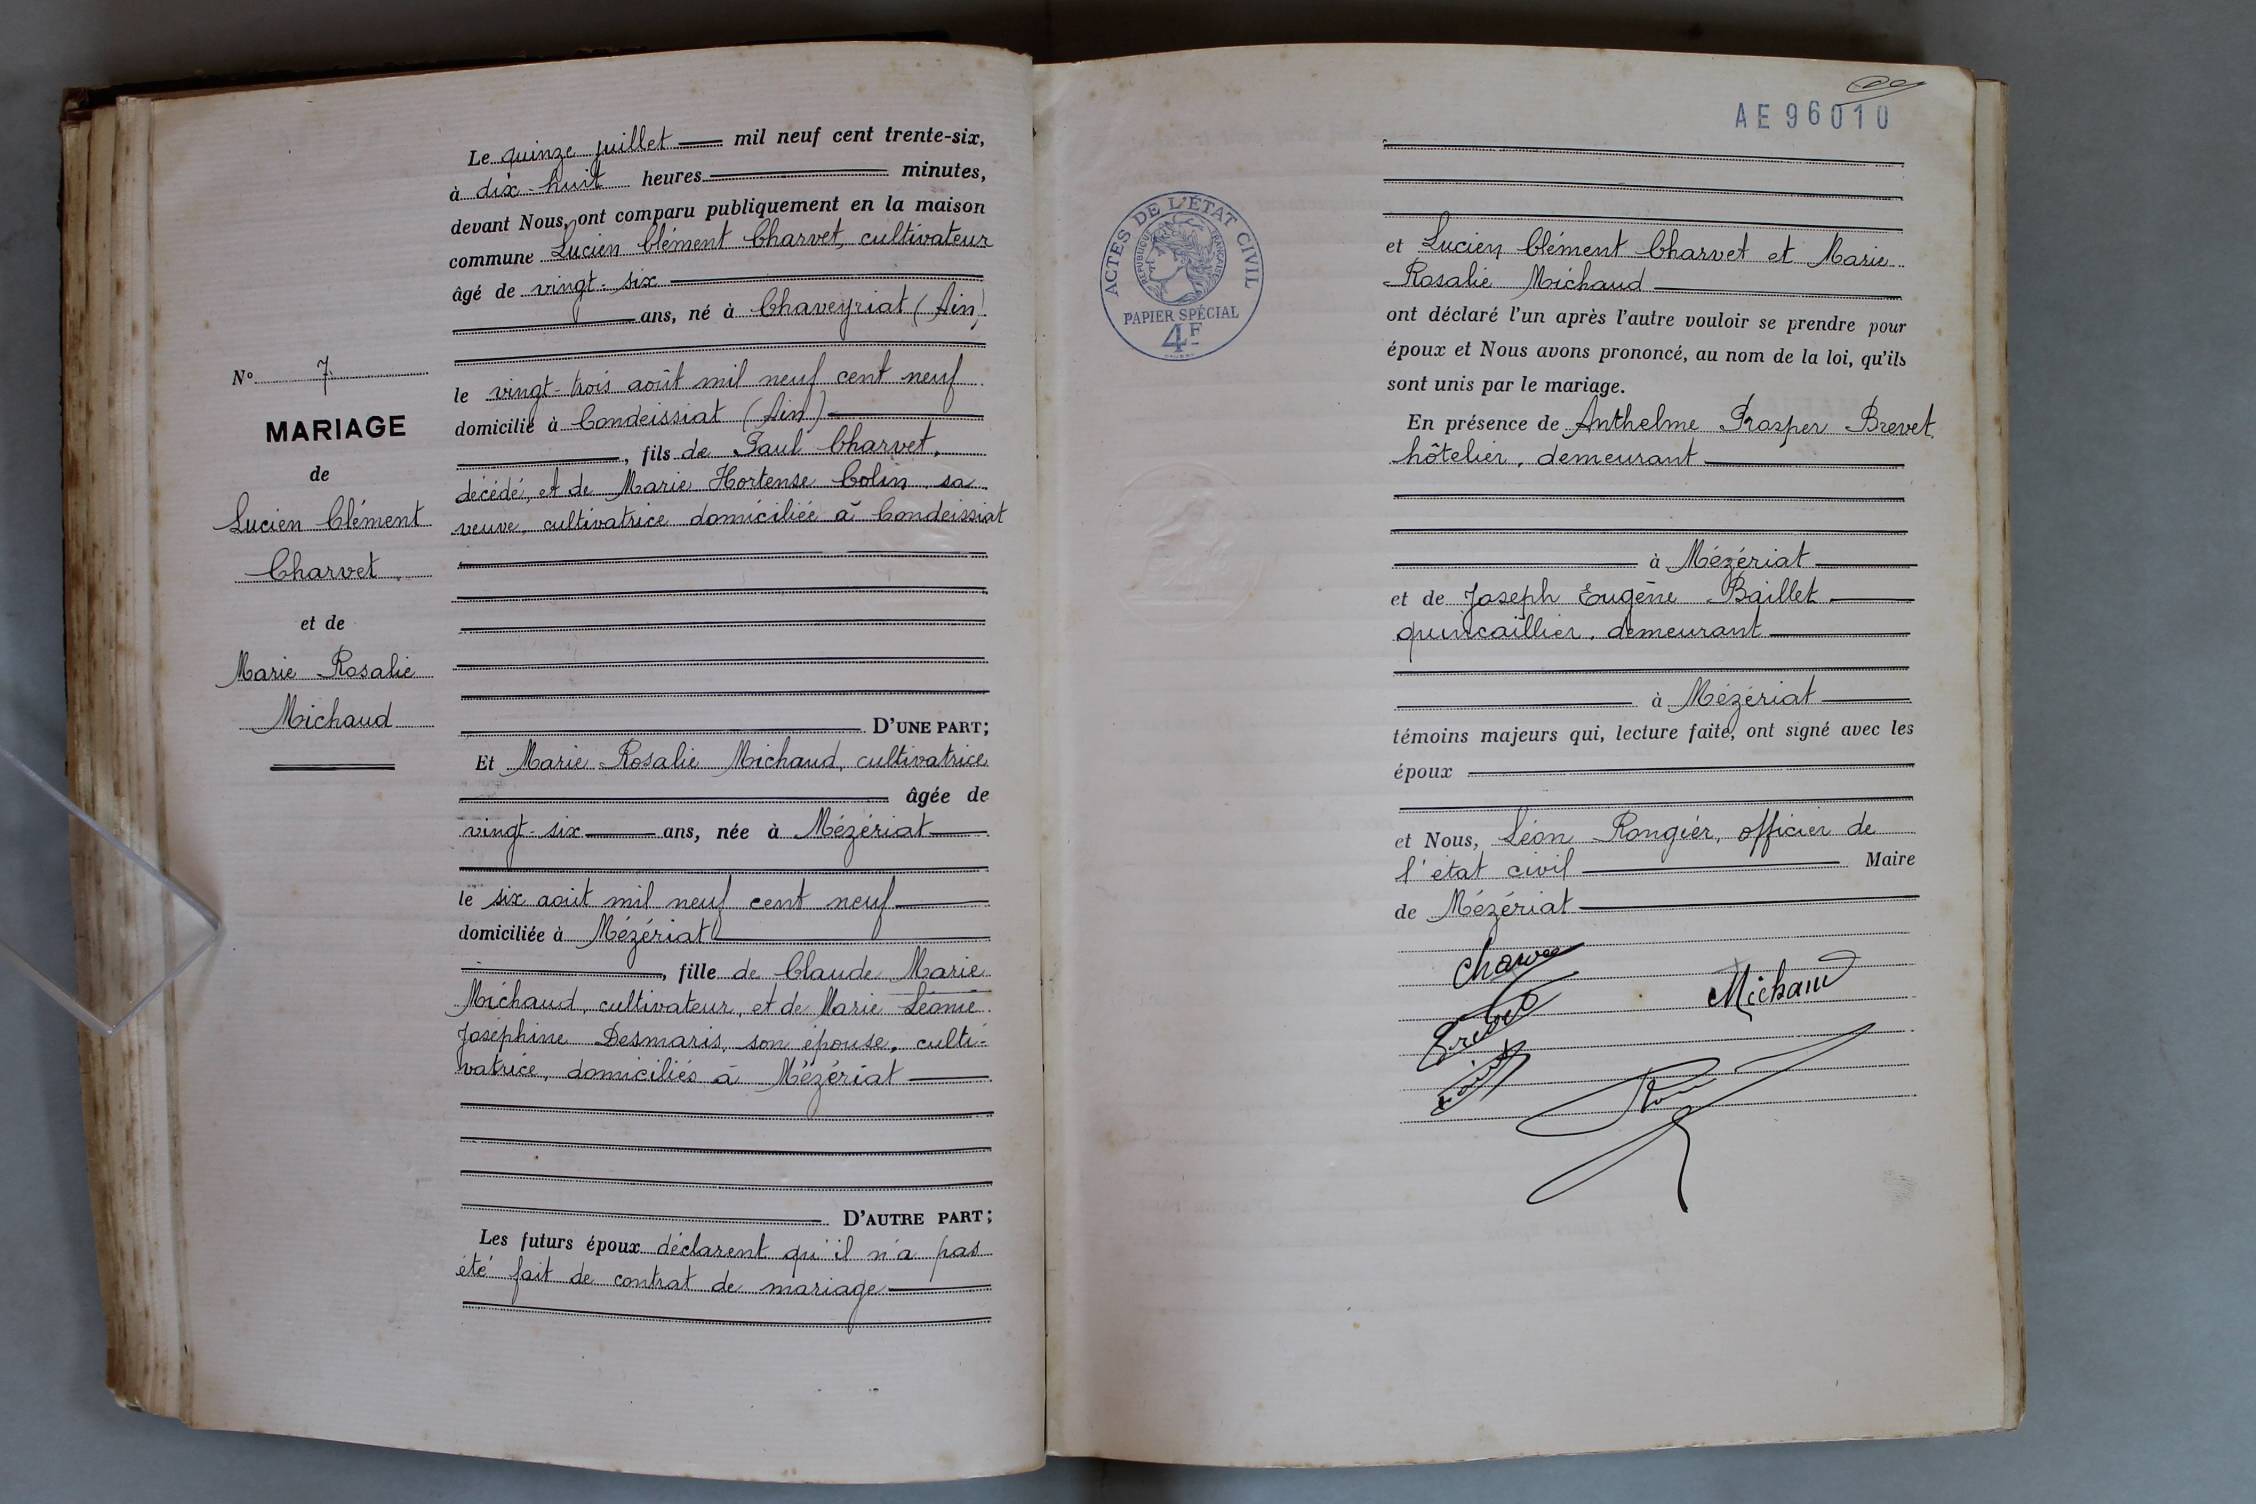 N° 7
MARIAGE
de
Lucien Clément
Charvet
et de
Marie Rosalie
Michaud
Le quinze juillet mil neuf cent trente-six,
à dix-huit heures minutes,
devant Nous, ont comparu publiquement en la maison
commune Lucien Clément Charvet, cultivateur
âgé de vingt-six
ans, né à Chaveyriat (Ain)
le vingt-trois août mil neuf cent neuf
domicilié à Condeissiat (Ain)
, fils de Paul Charvet,
décédé, et de Marie Hortense Colin, sa
veuve, cultivatrice domiciliée à Condeissiat
D'UNE PART;
Et Marie Rosalie Michaud, cultivatrice
âgée de
vingt-six ans, née à Mézériat
le six août mil neuf cent neuf
domiciliée à Mézériat
, fille de Claude Marie
Michaud, cultivateur, et de Marie Léonie
Joséphine Desmaris, son épouse, culti-
vatrice, domiciliés à Mézériat
D'AUTRE PART;
Les futurs époux déclarent qu'il n'a pas
été fait de contrat de mariage
AE96010
ACTES DE L'ÉTAT CIVIL
RÉPUBLIQUE FRANÇAISE
PAPIER SPÉCIAL
4F
et Lucien Clément Charvet et Marie
Rosalie Michaud
ont déclaré l'un après l'autre vouloir se prendre pour
époux et Nous avons prononcé, au nom de la loi, qu'ils
sont unis par le mariage.
En présence de Anthelme Prosper Brevet
hôtelier, demeurant
à Mézériat
et de Joseph Eugène Baillet
quincaillier, demeurant
à Mézériat
témoins majeurs qui, lecture faite, ont signé avec les
époux
et Nous, Léon Rongier, officier de
l'état civil Maire
de Mézériat
Charvet
Michaud
Brevet